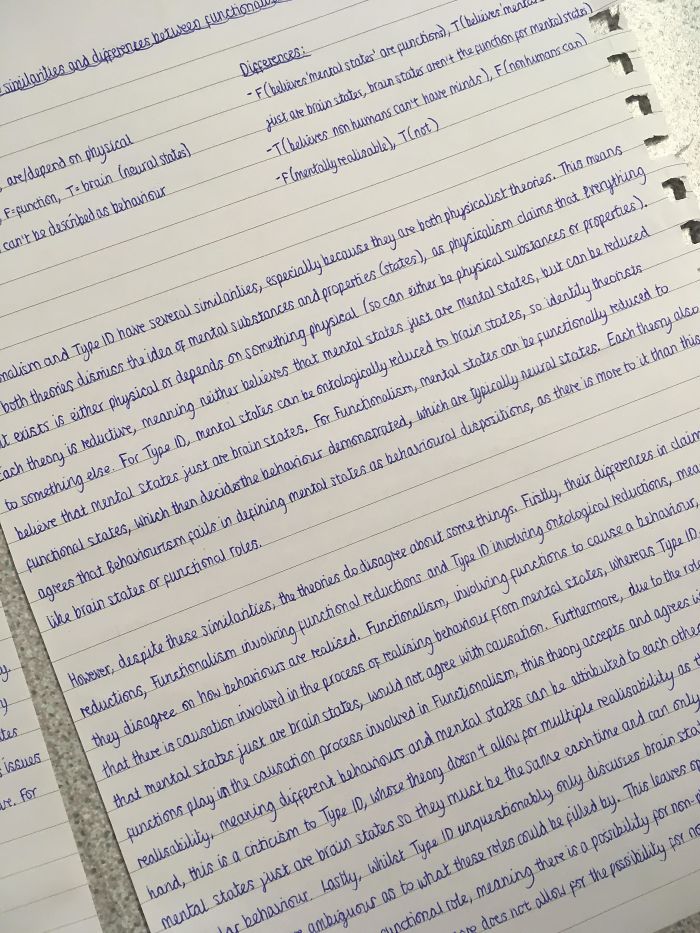 similarities and differences between functional
Differences:
-F(believes 'mental states' are functions), T(believes 'mental
just are brain states, brain states aren't the function for mental state)
-T(believes non humans can't have minds), F(nonhumans can)
-F(mentally realisable), T(not)
, are/depend on physical
, F=function, T=brain (neural states)
can't be described as behaviour
nalism and Type ID have several similarities, especially because they are both physicalist theories. This means
both theories dismiss the idea of mental substances and properties (states), as physicalism claims that everything
t exists is either physical or depends on something physical (so can either be physical substances or properties).
Each theory is reductive, meaning neither believes that mental states just are mental states, but can be reduced
to something else. For Type ID, mental states can be ontologically reduced to brain states, so identity theorists
believe that mental states just are brain states. For Functionalism, mental states can be functionally reduced to
functional states, which then decides the behaviour demonstrated, which are typically neural states. Each theory also
agrees that Behaviourism fails in defining mental states as behavioural dispositions, as there is more to it than this
like brain states or functional roles.
However, despite these similarities, the theories do disagree about some things. Firstly, their differences in claim
reductions, Functionalism involving functional reductions and Type ID involving ontological reductions, mea
they disagree on how behaviours are realised. Functionalism, involving functions to cause a behaviour,
that there is causation involved in the process of realising behaviour from mental states, whereas Type ID
that mental states just are brain states, would not agree with causation. Furthermore, due to the role
functions play in the causation process involved in Functionalism, this theory accepts and agrees wi
realisability, meaning different behaviours and mental states can be attributed to each other
hand, this is a criticism to Type ID, whose theory doesn't allow for multiple realisability as th
mental states just are brain states so they must be the same each time and can only
lar behaviour. Lastly, whilst Type ID unquestionably only discusses brain stat
ambiguous as to what these roles could be filled by. This leaves op
unctional role, meaning there is a possibility for non-
does not allow for the possibility for no
y
y
tes
issues
ve. For